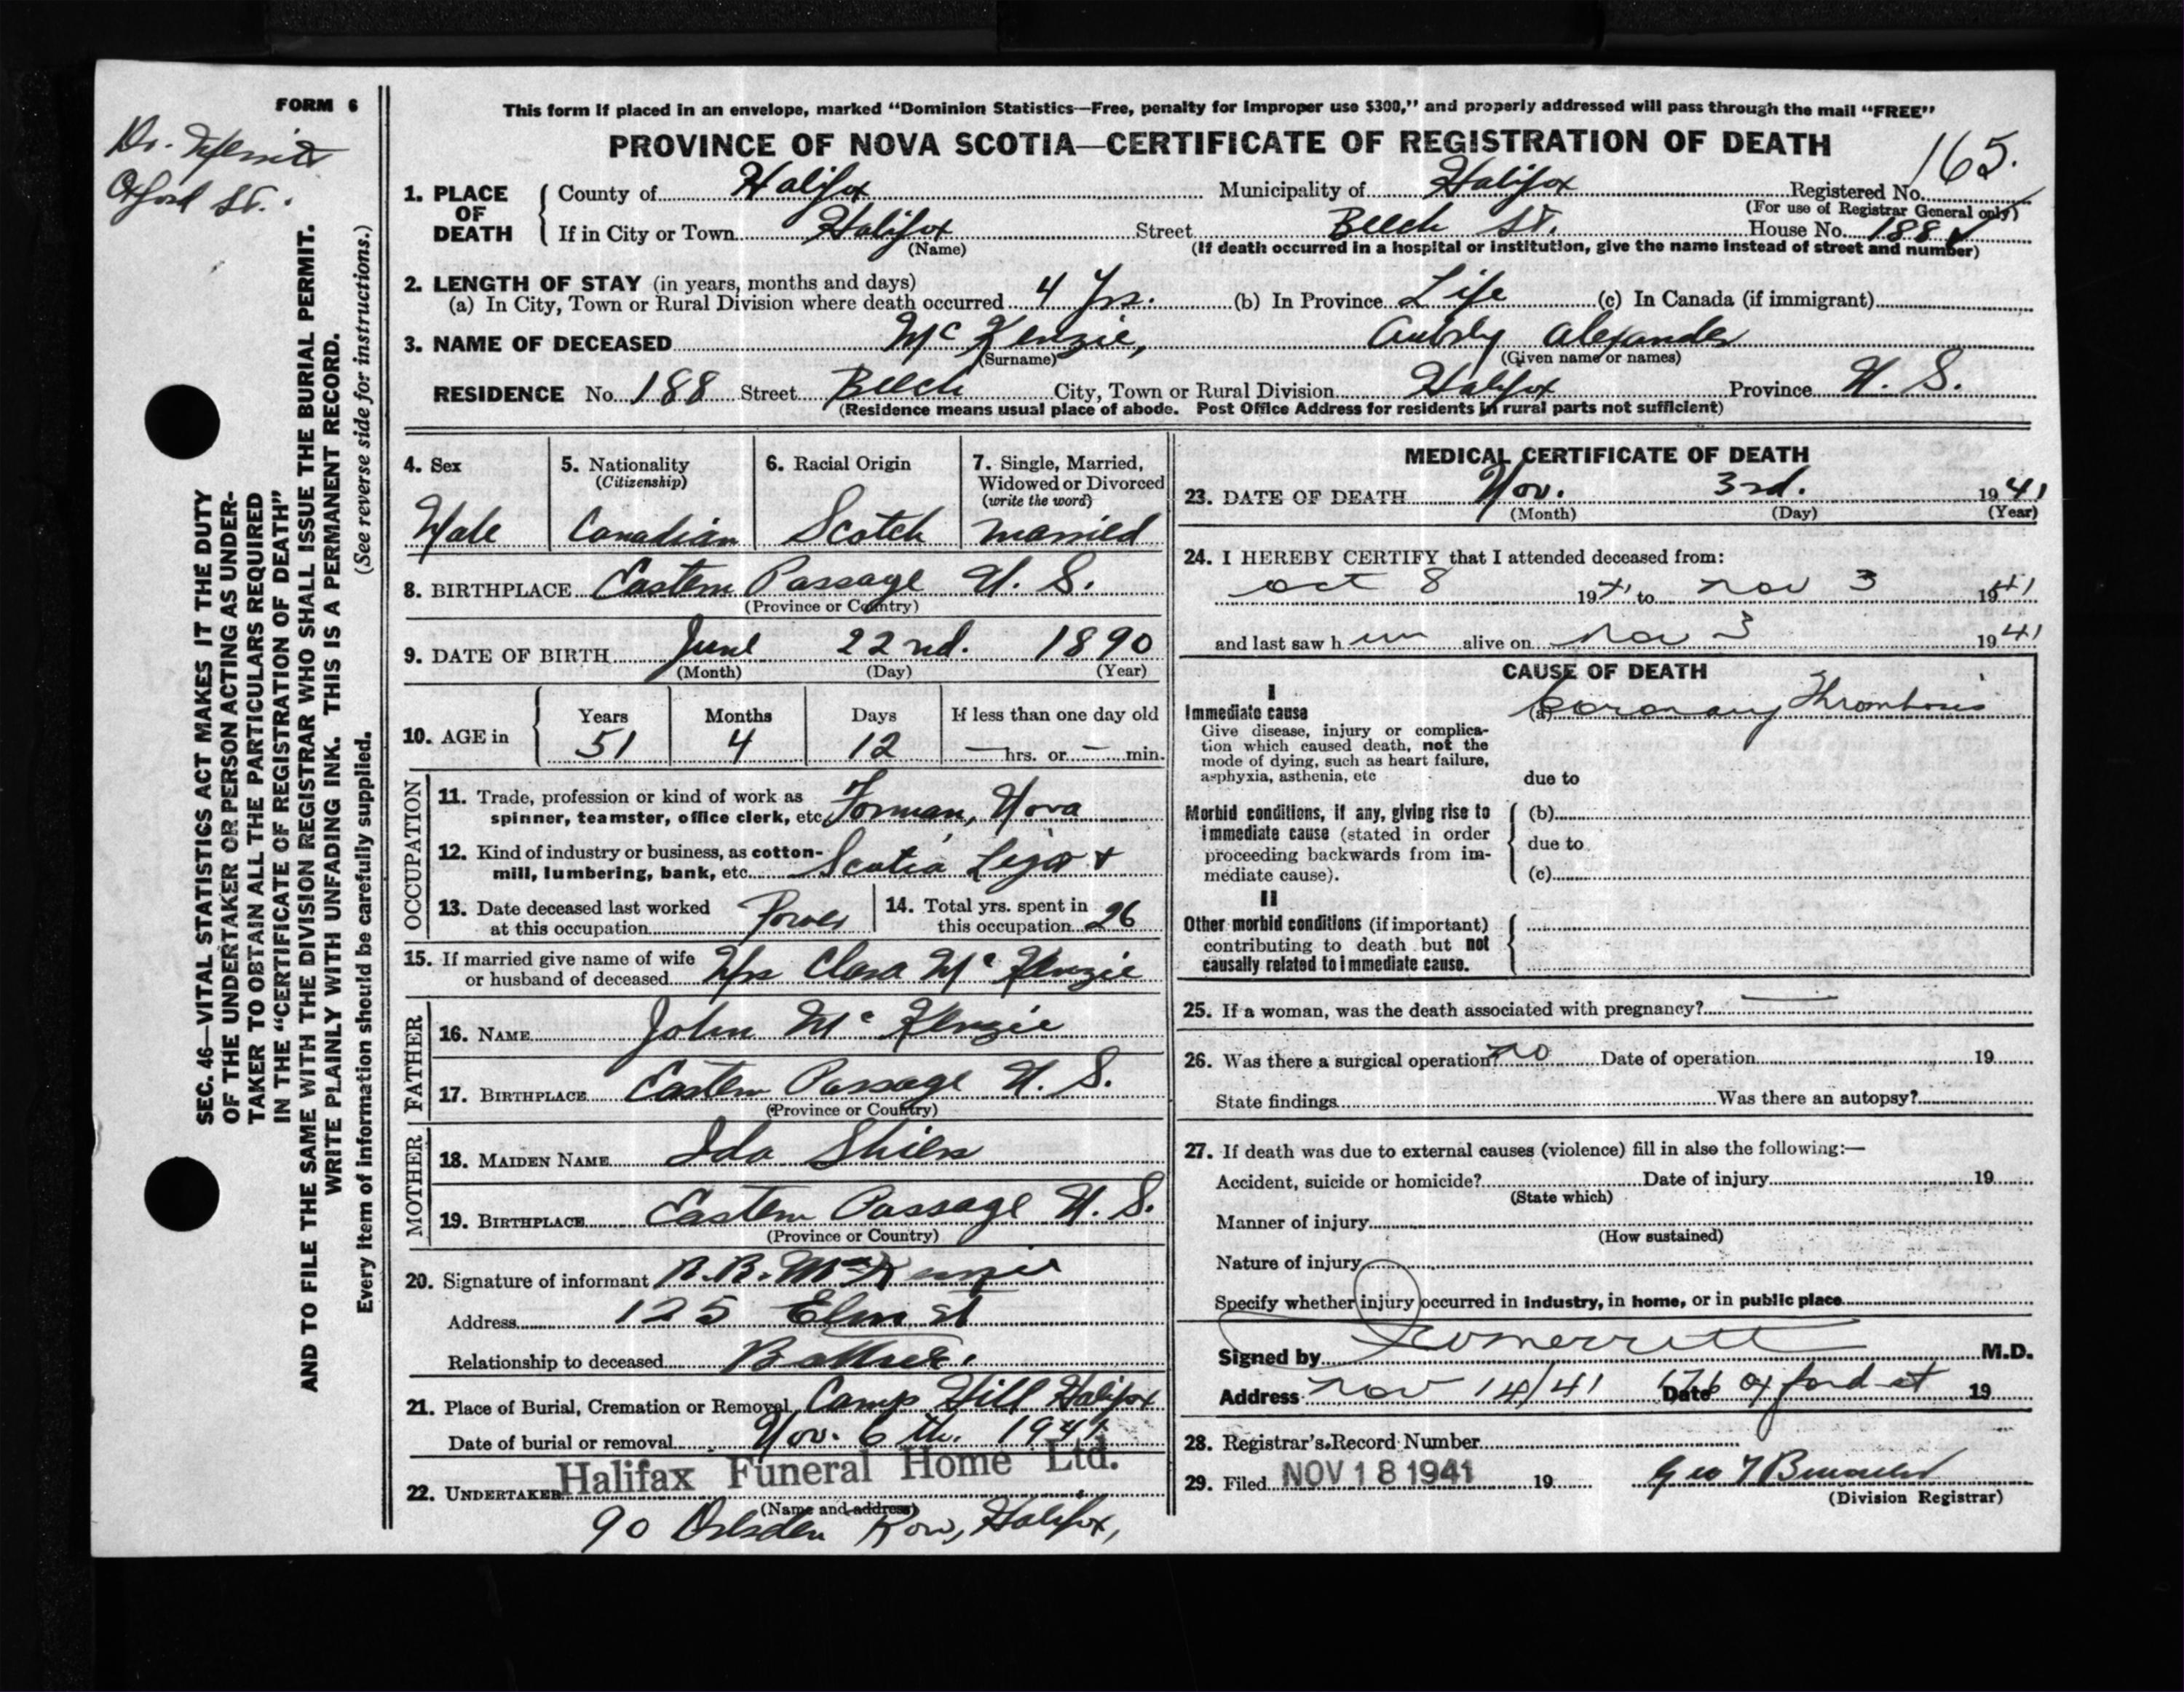 FORM 6
Dr. Merritt
Oxford St.
SEC. 46—VITAL STATISTICS ACT MAKES IT THE DUTY
OF THE UNDERTAKER OR PERSON ACTING AS UNDER-
TAKER TO OBTAIN ALL THE PARTICULARS REQUIRED
IN THE "CERTIFICATE OF REGISTRATION OF DEATH"
AND TO FILE THE SAME WITH THE DIVISION REGISTRAR WHO SHALL ISSUE THE BURIAL PERMIT.
WRITE PLAINLY WITH UNFADING INK. THIS IS A PERMANENT RECORD.
Every item of information should be carefully supplied. (See reverse side for instructions.)
This form if placed in an envelope, marked "Dominion Statistics—Free, penalty for improper use $300," and properly addressed will pass through the mail "FREE"
PROVINCE OF NOVA SCOTIA—CERTIFICATE OF REGISTRATION OF DEATH
165.
1. PLACE OF DEATH County of Halifax Municipality of Halifax Registered No.
(For use of Registrar General only)
If in City or Town Halifax Street Beech St. House No. 188
(Name) (If death occurred in a hospital or institution, give the name instead of street and number)
2. LENGTH OF STAY (in years, months and days)
(a) In City, Town or Rural Division where death occurred 4 Yrs. (b) In Province Life (c) In Canada (if immigrant)
3. NAME OF DECEASED McKenzie, Aubrly Alexander
(Surname) (Given name or names)
RESIDENCE No. 188 Street Beech City, Town or Rural Division Halifax Province N. S.
(Residence means usual place of abode. Post Office Address for residents in rural parts not sufficient)
4. Sex 5. Nationality 6. Racial Origin 7. Single, Married,
(Citizenship) Widowed or Divorced
(write the word)
Male Canadian Scotch Married
8. BIRTHPLACE Eastern Passage N. S.
(Province or Country)
9. DATE OF BIRTH June 22nd. 1890
(Month) (Day) (Year)
10. AGE in Years Months Days If less than one day old
51 4 12 — hrs. or — min.
OCCUPATION
11. Trade, profession or kind of work as
spinner, teamster, office clerk, etc. Forman, Nova
12. Kind of industry or business, as cotton-
mill, lumbering, bank, etc. Scotia Light +
13. Date deceased last worked
at this occupation Power
14. Total yrs. spent in
this occupation 26
15. If married give name of wife
or husband of deceased Mrs Clara McKenzie
FATHER
16. NAME John McKenzie
17. BIRTHPLACE Eastern Passage N. S.
(Province or Country)
MOTHER
18. MAIDEN NAME Ida Shiers
19. BIRTHPLACE Eastern Passage N. S.
(Province or Country)
20. Signature of informant McKenzie
Address 125 Elm st
Relationship to deceased Brother.
21. Place of Burial, Cremation or Removal Camp Hill Halifax
Date of burial or removal Nov. 6th. 1941
22. UNDERTAKER Halifax Funeral Home Ltd.
(Name and address)
90 Dresden Row, Halifax,
MEDICAL CERTIFICATE OF DEATH
23. DATE OF DEATH Nov. 3rd. 1941
(Month) (Day) (Year)
24. I HEREBY CERTIFY that I attended deceased from:
Oct 8 1941 to Nov 3 1941
and last saw him alive on Nov 3 1941
CAUSE OF DEATH
I
Immediate cause (a) Coronary Thrombosis
Give disease, injury or complica-
tion which caused death, not the
mode of dying, such as heart failure,
asphyxia, asthenia, etc due to
Morbid conditions, if any, giving rise to (b)
immediate cause (stated in order due to
proceeding backwards from im-
mediate cause). (c)
II
Other morbid conditions (if important)
contributing to death but not
causally related to immediate cause.
25. If a woman, was the death associated with pregnancy? —
26. Was there a surgical operation? no Date of operation 19
State findings Was there an autopsy?
27. If death was due to external causes (violence) fill in also the following:—
Accident, suicide or homicide? Date of injury 19
(State which)
Manner of injury
(How sustained)
Nature of injury
Specify whether injury occurred in industry, in home, or in public place
Signed by Merritt M.D.
Address Nov 14/41 Date Oxford st 19
28. Registrar's Record Number
29. Filed NOV 18 1941 19 Geo
(Division Registrar)